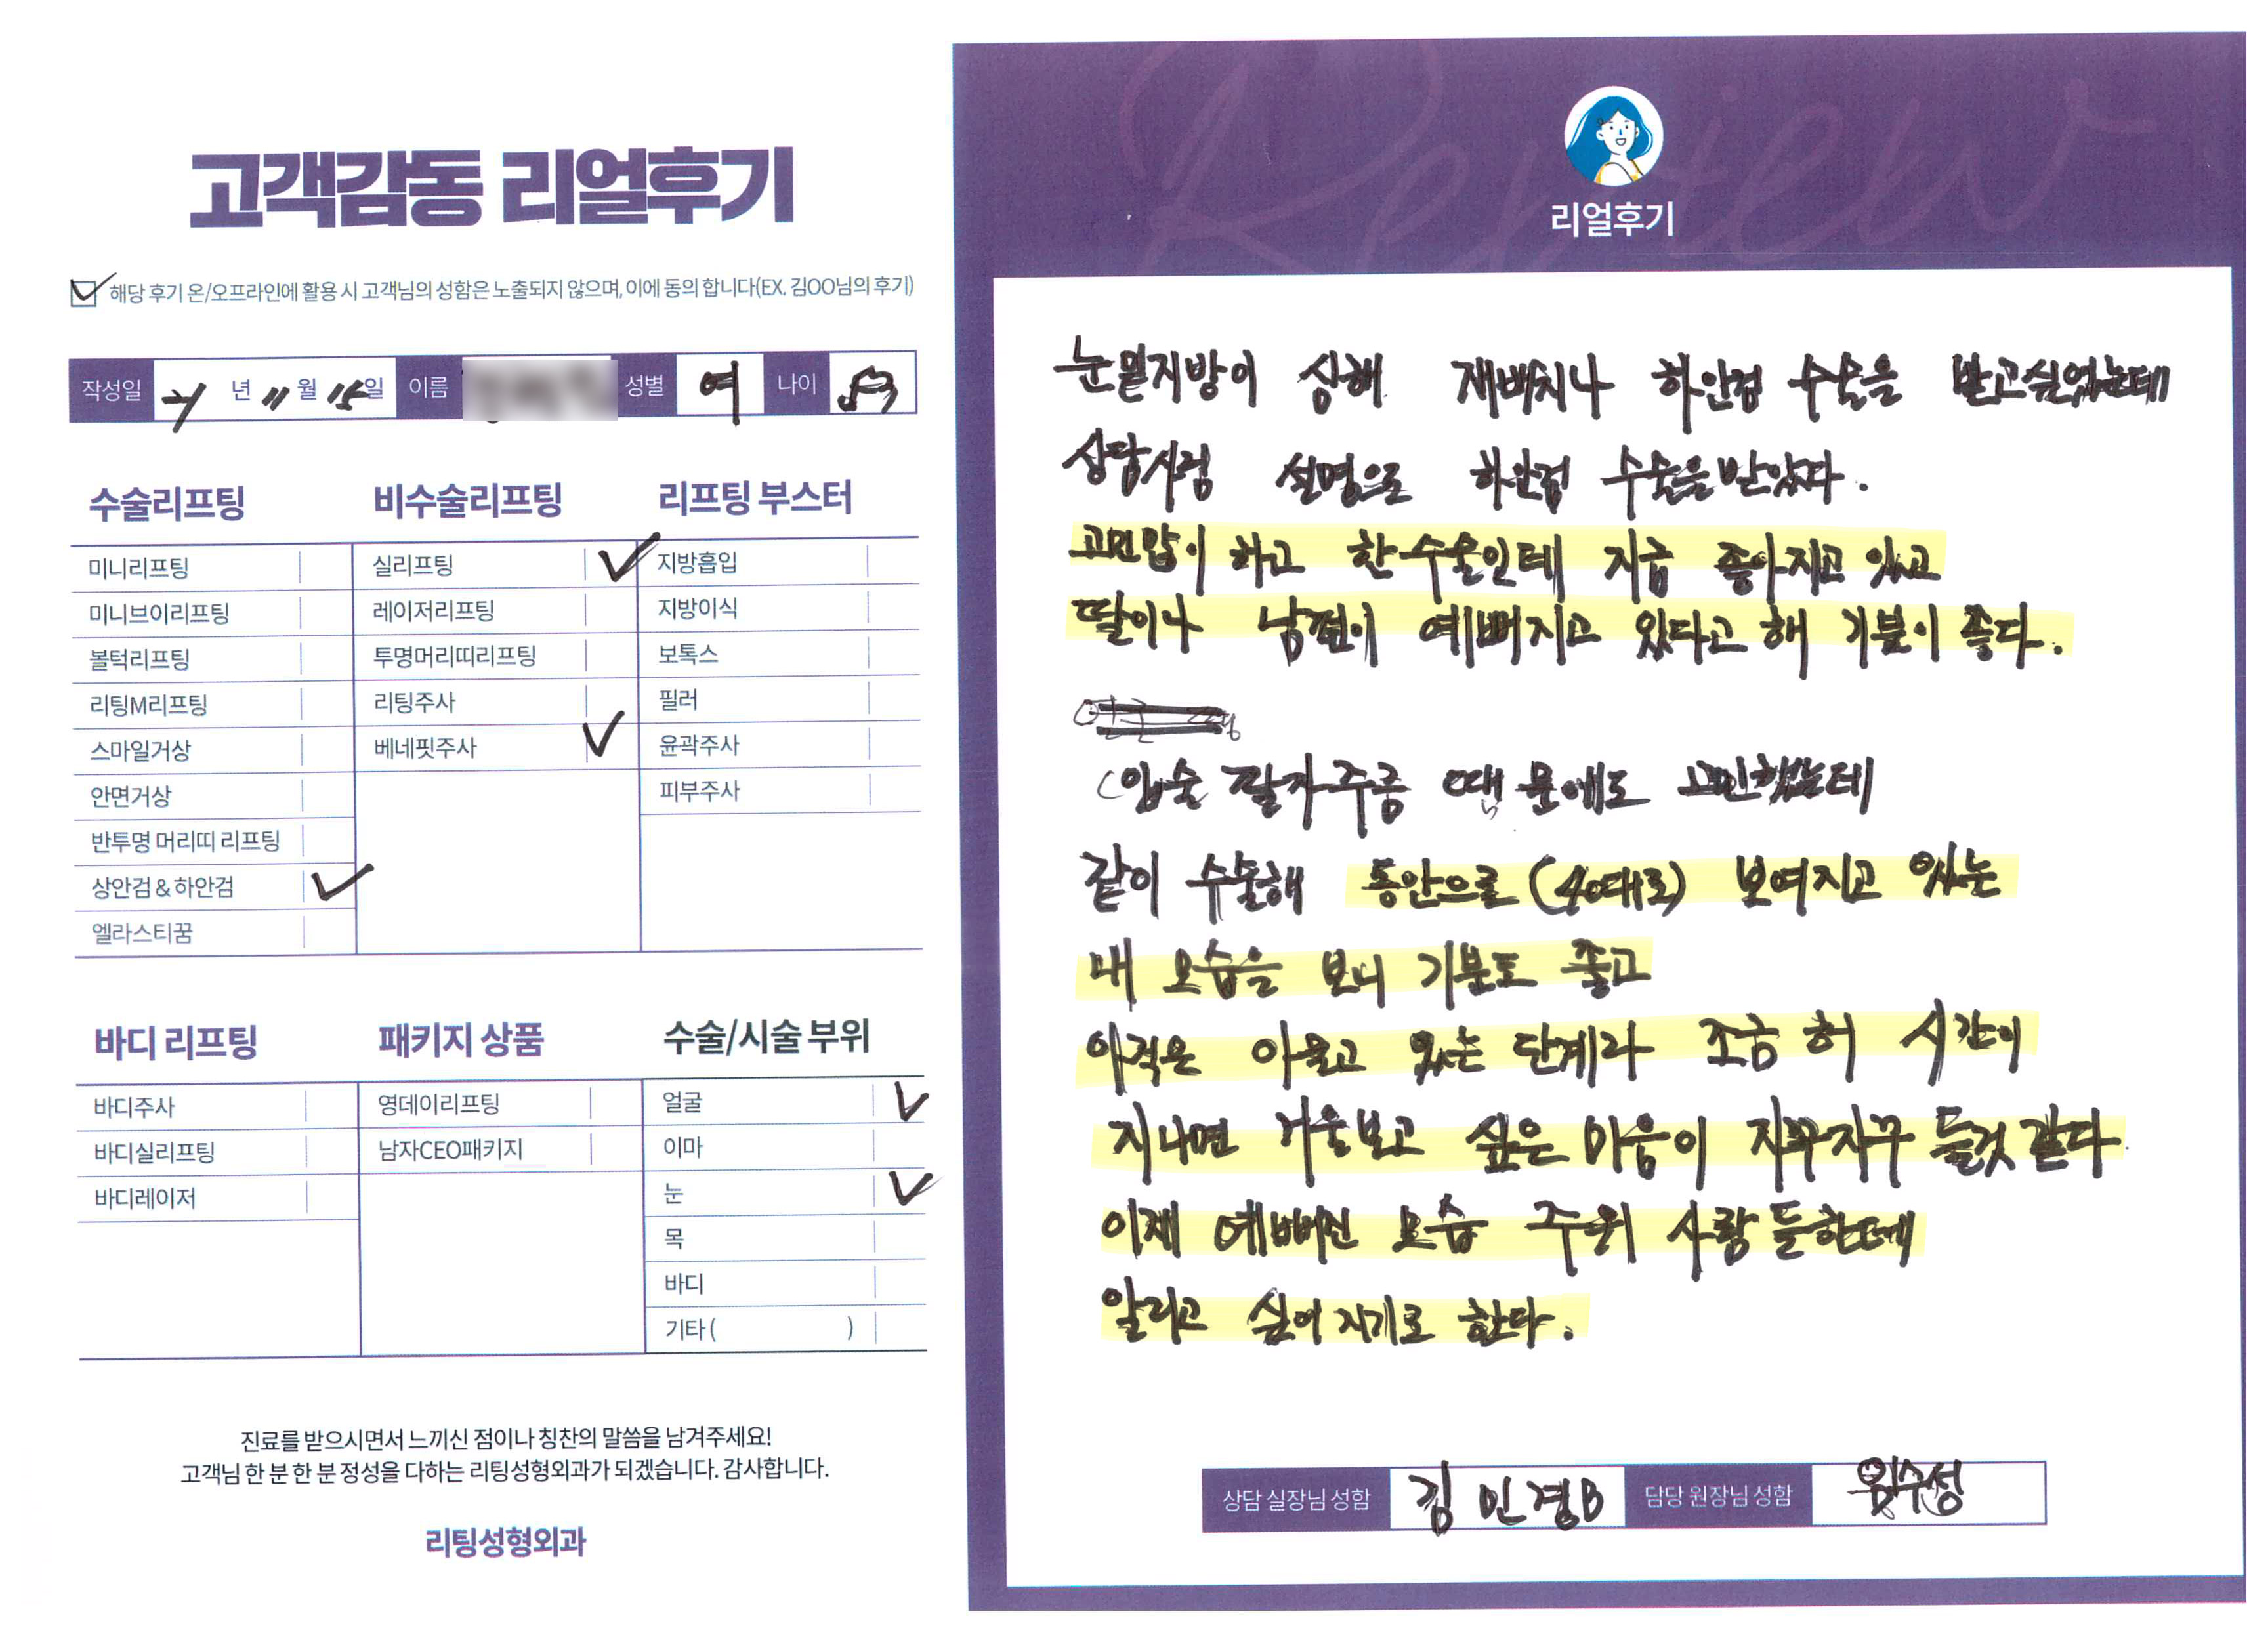 고객감동 리얼후기
해당 후기 온/오프라인에 활용 시 고객님의 성함은 노출되지 않으며, 이에 동의 합니다(EX. 김OO님의 후기)
작성일 년 11월 15일 이름 성별 여 나이 53
수술리프팅
미니리프팅
미니브이리프팅
볼턱리프팅
리팅M리프팅
스마일거상
안면거상
반투명 머리띠 리프팅
상안검 & 하안검
엘라스티꿈
비수술리프팅
실리프팅
레이저리프팅
투명머리띠리프팅
리팅주사
베네핏주사
리프팅 부스터
지방흡입
지방이식
보톡스
필러
윤곽주사
피부주사
바디 리프팅
바디주사
바디실리프팅
바디레이저
패키지 상품
영데이리프팅
남자CEO패키지
수술/시술 부위
얼굴
이마
눈
목
바디
기타( )
진료를 받으시면서 느끼신 점이나 칭찬의 말씀을 남겨주세요!
고객님 한 분 한 분 정성을 다하는 리팅성형외과가 되겠습니다. 감사합니다.
리팅성형외과
Review
리얼후기
눈밑지방이 심해 재배치나 하안검 수술을 받고싶었는데
상담사님 설명으로 하안검 수술을 받았다.
고민많이 하고 한 수술인데 지금 좋아지고 있고
딸이나 남편이 예뻐지고 있다고 해 기분이 좋다.
입술 팔자주름 땜 문에도 고민했는데
같이 수술해 동안으로 (40대로) 보여지고 있는
내 모습을 보니 기분도 좋고
아직은 아물고 있는 단계라 조금 허 시간이
지나면 거울보고 싶은 마음이 자꾸자꾸 들것 같다.
이제 예뻐진 모습 주위 사람들한테
알리고 싶어 지기로 한다.
상담 실장님 성함 김민경B 담당 원장님 성함